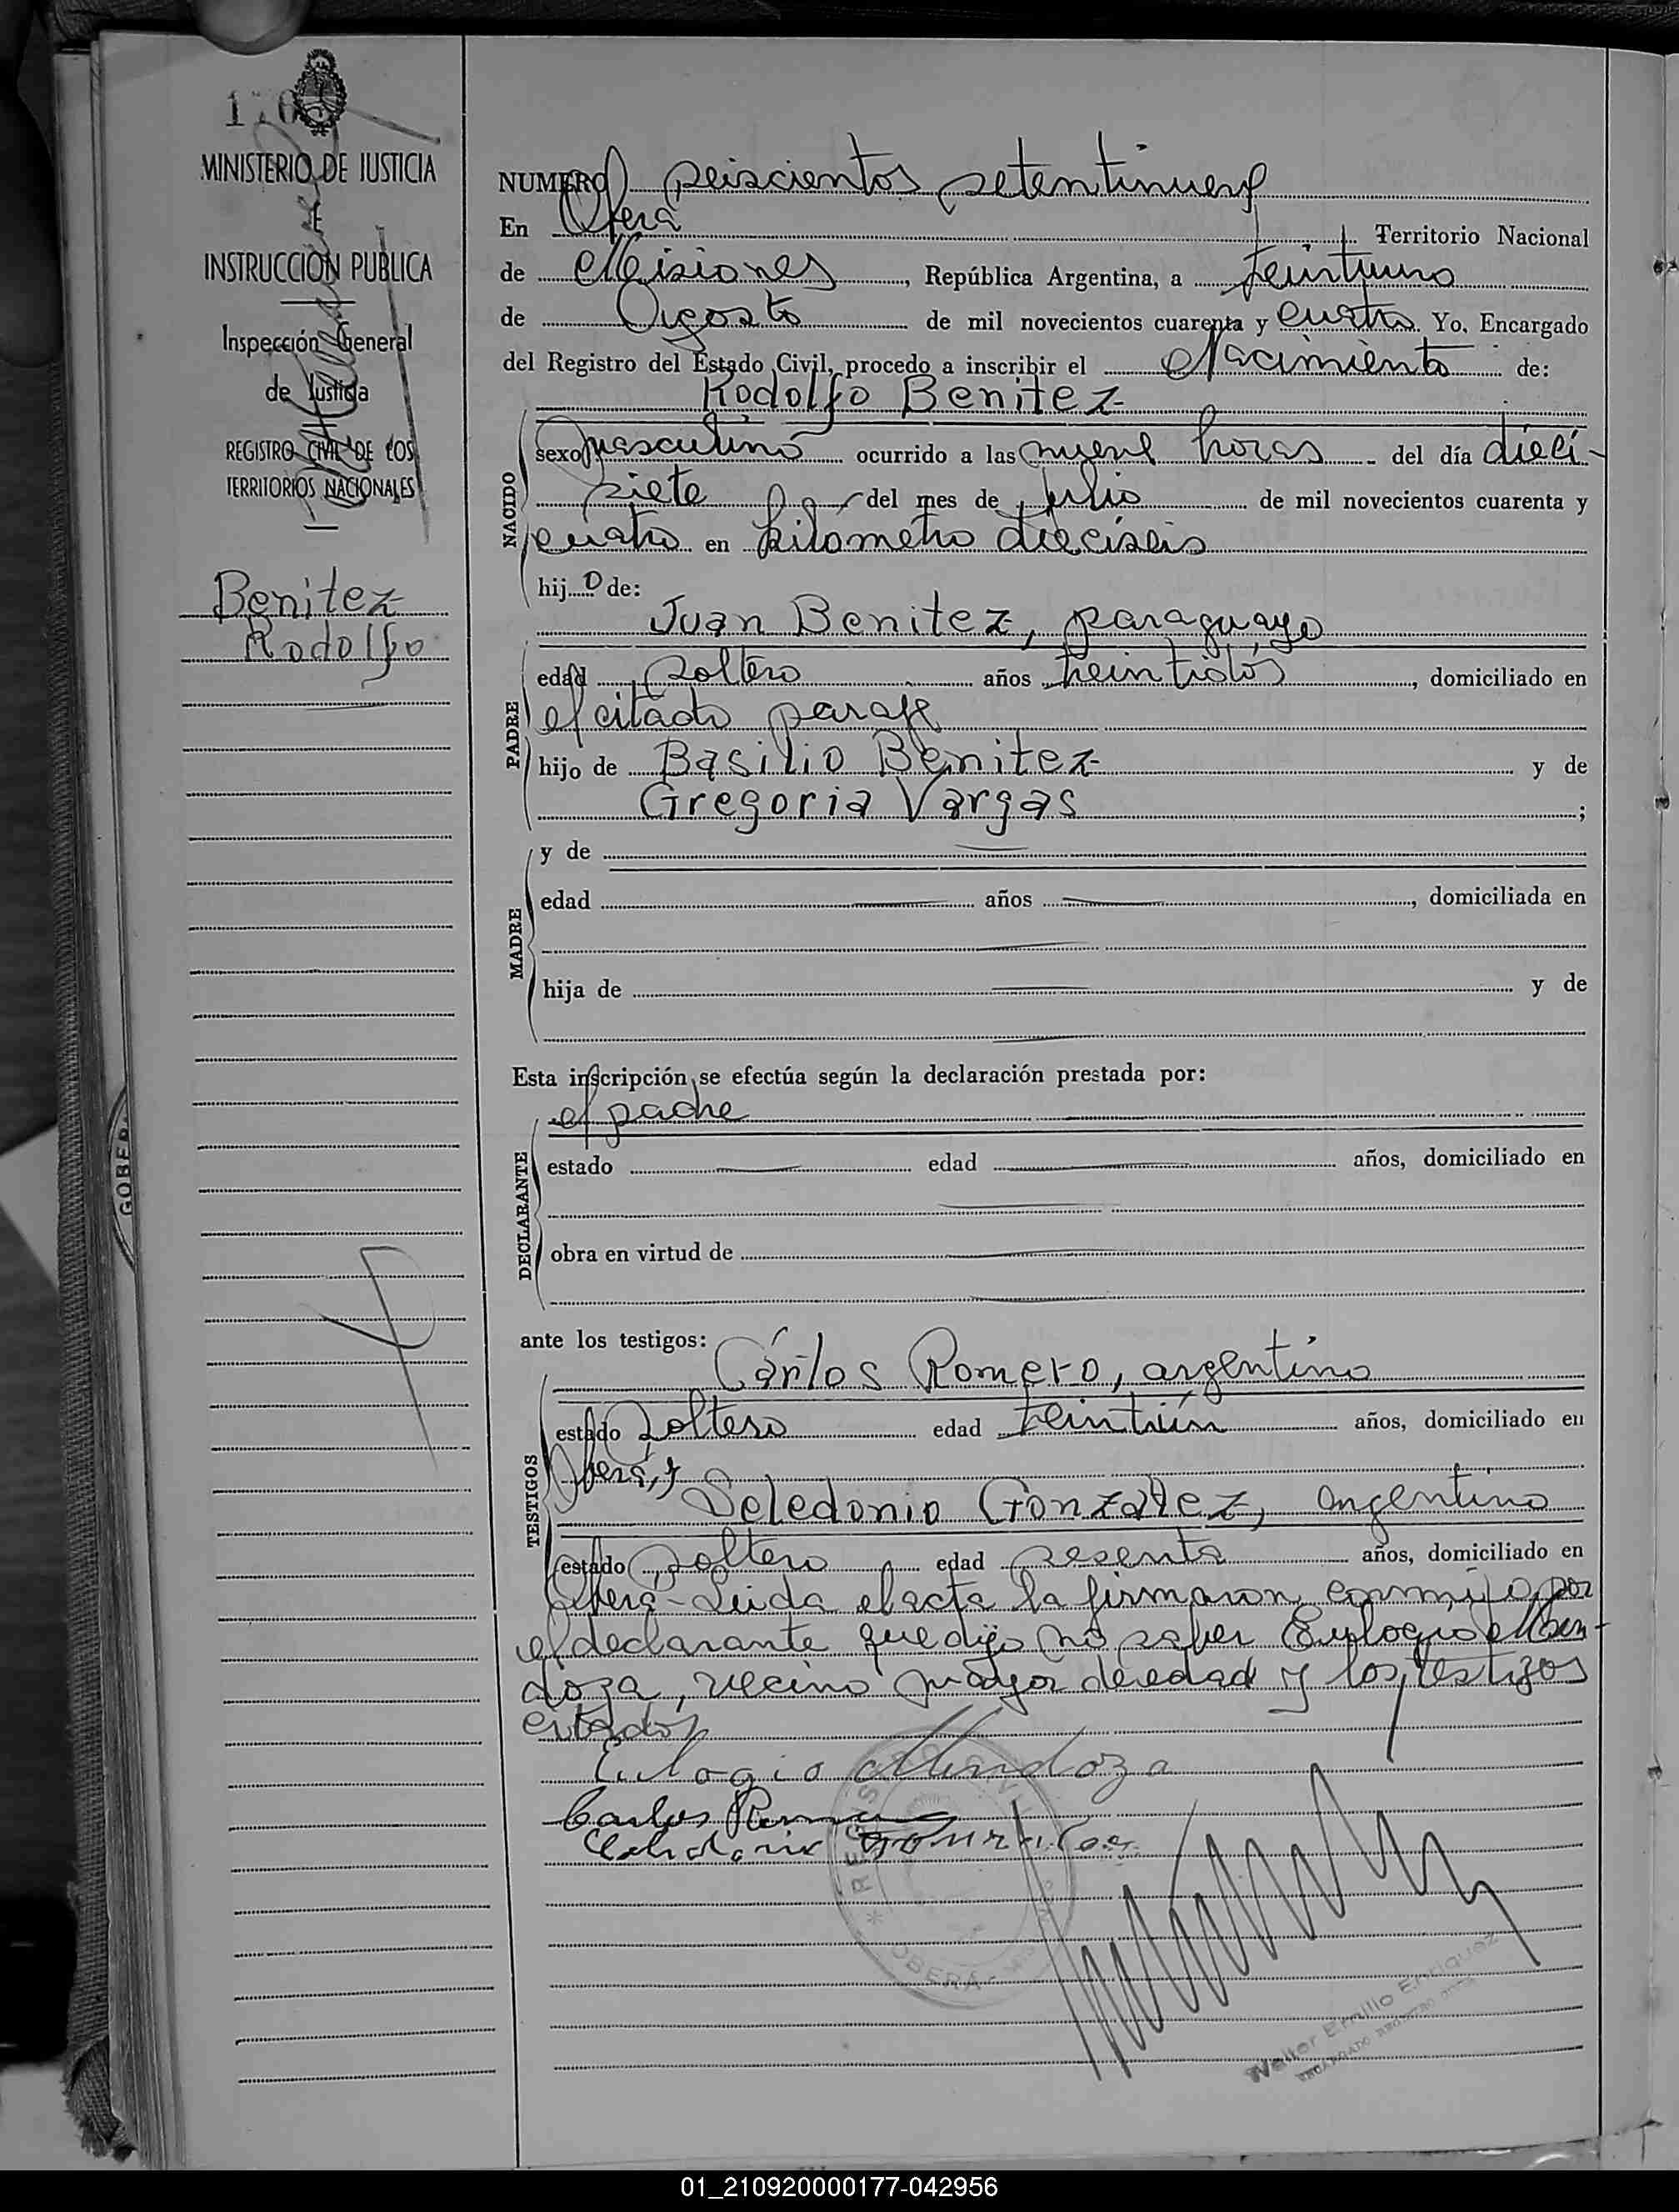 MINISTERIO DE JUSTICIA
INSTRUCCION PUBLICA
Inspección General
de Justicia
REGISTRO CIVIL DE LOS
TERRITORIOS NACIONALES
Benitez
Rodolfo
NUMERO seiscientos setentinueve
En Oberá Territorio Nacional
de Misiones, República Argentina, a veintiuno
de Agosto de mil novecientos cuarenta y cuatro. Yo, Encargado
del Registro del Estado Civil, procedo a inscribir el Nacimiento de:
Rodolfo Benitez
NACIDO
sexo masculino ocurrido a las nueve horas del día dieci-
siete del mes de Julio de mil novecientos cuarenta y
cuatro en kilómetro dieciseis
hijo de:
Juan Benitez, paraguayo
PADRE
edad soltero años veintidós, domiciliado en
el citado paraje
hijo de Basilio Benitez y de
Gregoria Vargas;
MADRE
y de
edad años, domiciliada en
hija de y de
Esta inscripción se efectúa según la declaración prestada por:
el padre
DECLARANTE
estado edad años, domiciliado en
obra en virtud de
ante los testigos:
Cárlos Romero, argentino
TESTIGOS
estado soltero edad veintiún años, domiciliado en
Oberá, y
Seledonio Gonzalez, argentino
estado soltero edad sesenta años, domiciliado en
Oberá - Leida el acta la firmaron conmigo, por
el declarante que dijo no saber Eulogio Men-
doza, vecino mayor de edad y los testigos
citados
Eulogio Mendoza
Carlos
OBERÁ
Walter Emilio Enriquez
ENCARGADO REGISTRO CIVIL
GOBER
01_210920000177-042956